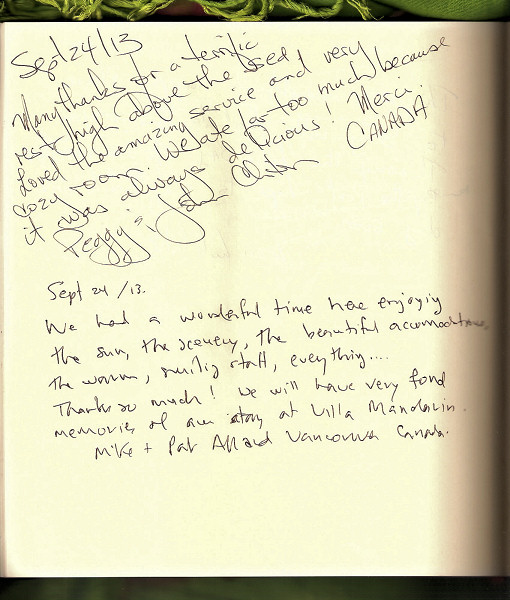 Sept 24/13
Many thanks for a terrific
rest high above the sea
Loved the amazing service and very
cozy room. We ate far too much because
it was always delicious! Merci.
Peggy & John CANADA
Sept 24/13.
We had a wonderful time here enjoying
the sun, the scenery, the beautiful accomodations
the warm, smiling staff, everything....
Thanks so much! We will have very fond
memories of our stay at Villa Mandarin.
Mike + Pat Vancouver Canada.